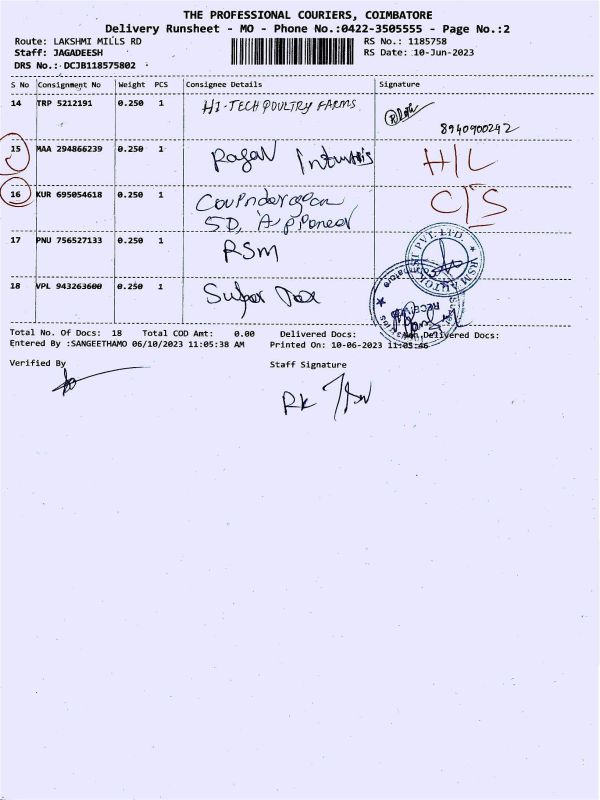 THE PROFESSIONAL COURIERS, COIMBATORE
Delivery Runsheet - MO - Phone No.:0422-3505555 - Page No.:2
Route: LAKSHMI MILLS RD RS No.: 1185758
Staff: JAGADEESH RS Date: 10-Jun-2023
DRS No.: DCJB118575802
S No Consignment No Weight PCS Consignee Details Signature
14 TRP 5212191 0.250 1 HI-TECH POULTRY FARMS
8940900242
15 MAA 294866239 0.250 1 H/L
16 KUR 695054618 0.250 1 C/S
17 PNU 756527133 0.250 1 RSM
RSM AUTOKAST PVT. LTD.
18 VPL 943263600 0.250 1
RECEIVED
Total No. Of Docs: 18 Total COD Amt: 0.00 Delivered Docs: Non Delivered Docs:
Entered By :SANGEETHAMO 06/10/2023 11:05:38 AM Printed On: 10-06-2023 11:05:46
Verified By Staff Signature
RK